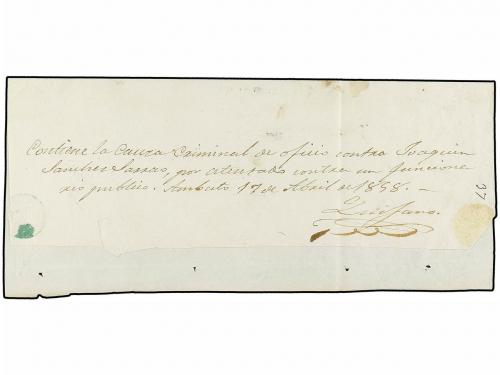 Contiene la causa criminal de oficio contra Joaquin
Sanches Larras, por atentados contra un funciona
rio publico. Ambato 17 de Abril de 1858.
Quijano.
37